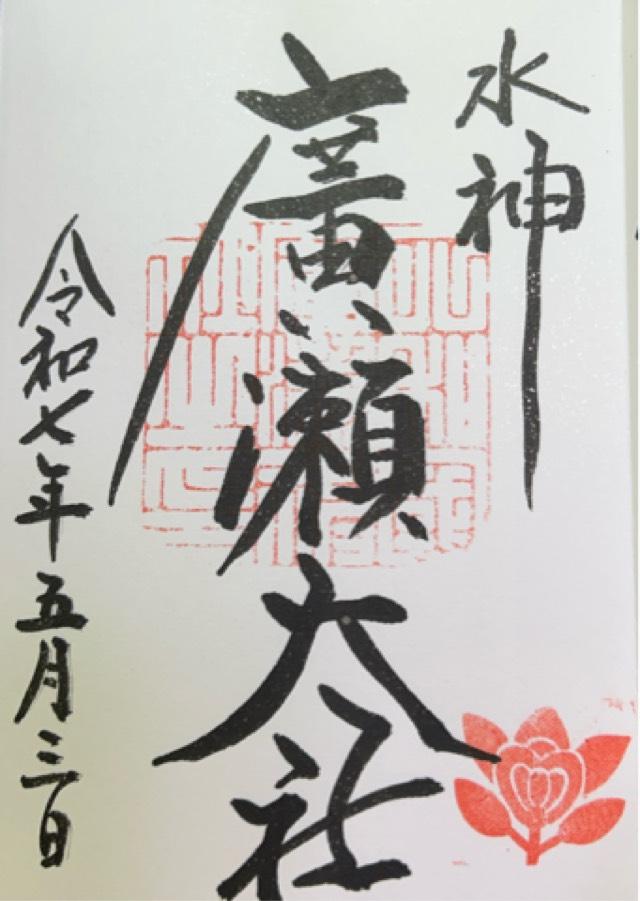 水神
廣瀬大社
令和七年五月三日